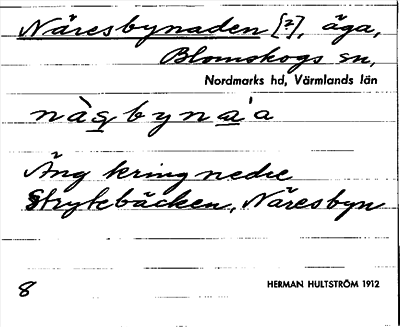 Näresbynaden [?], äga,
Blomskogs sn,
Nordmarks hd, Värmlands län
nàs̱byna̱'a
Äng kring nedre
Strytebäcken, Näresbyn
8
HERMAN HULTSTRÖM 1912